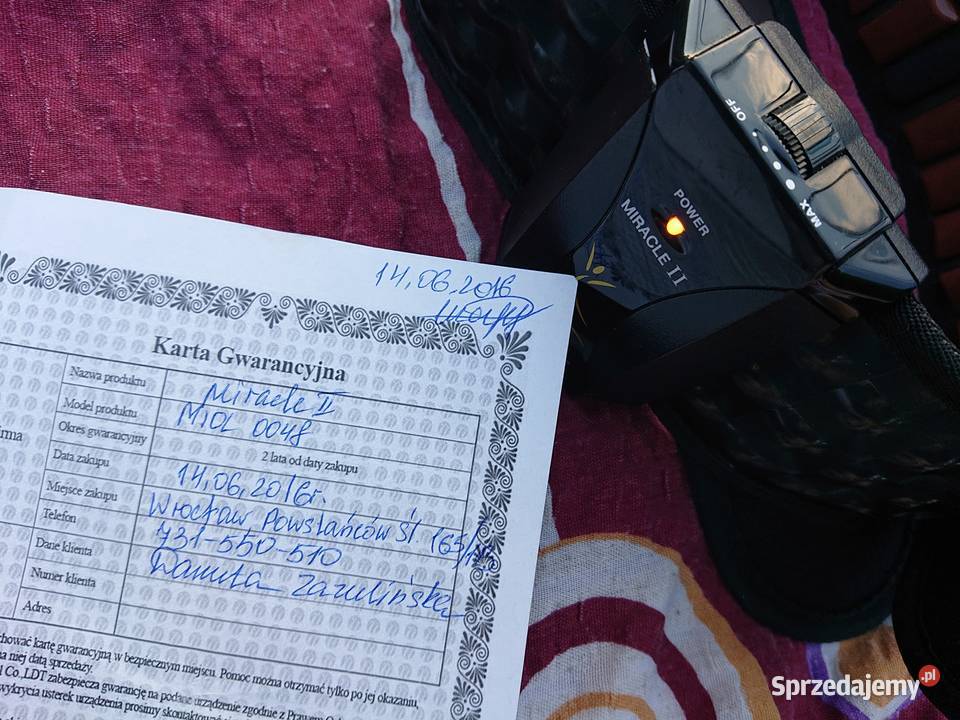 14,06,2016
Karta Gwarancyjna
Nazwa produktu Miracle II
Model produktu MIOL 0048
Okres gwarancyjny 2 lata od daty zakupu
Data zakupu 14,06,2016r.
Miejsce zakupu Wrocław Powstańców Śl. 165/
Telefon 731-550-510
Dane klienta Danuta Zazulińska
Numer klienta
Adres
chować kartę gwarancyjną w bezpiecznym miejscu. Pomoc można otrzymać tylko po jej okazaniu,
na niej datą sprzedaży.
l Co.,LDT zabezpiecza gwarancję na podane urządzenie zgodnie z Prawem
wykrycia usterek urządzenia prosimy
OFF
MAX
POWER
MIRACLE II
Sprzedajemy.pl